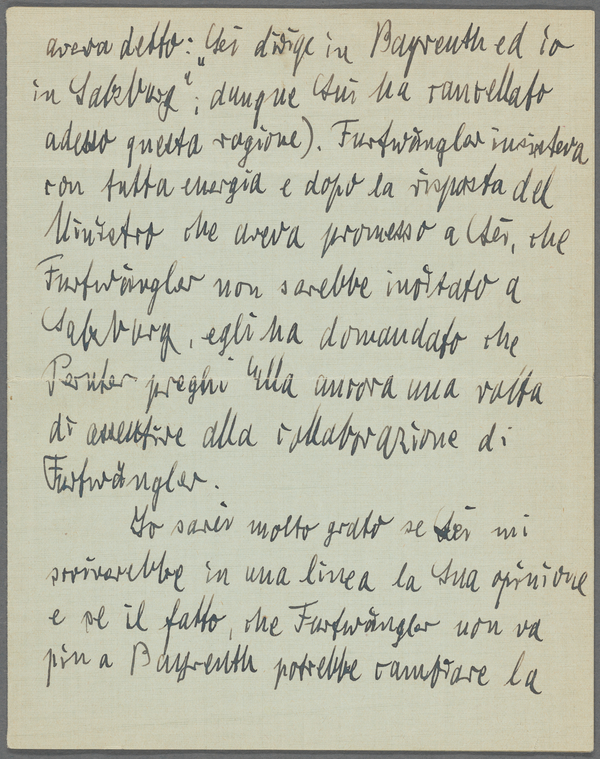 aveva detto: "Lei dirige in Bayreuth ed io
in Salzburg"; dunque Lui ha cancellato
adesso questa ragione). Furtwängler insisteva
con tutta energia e dopo la risposta del
Ministro che aveva promesso a Lei, che
Furtwängler non sarebbe invitato a
Salzburg, egli ha domandato che
Pernter preghi Ella ancora una volta
di assentire alla collaborazione di
Furtwängler.
Io sarei molto grato se Lei mi
scriverebbe in una linea la Sua opinione
e se il fatto, che Furtwängler non va
piu a Bayreuth potrebbe cambiare la